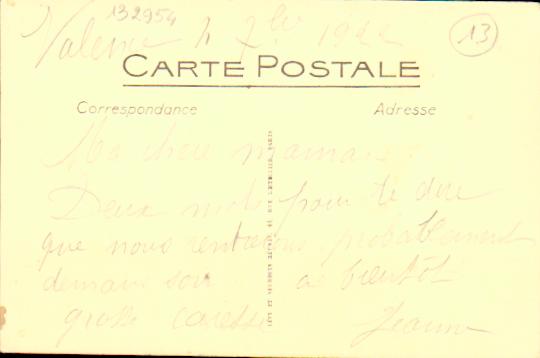 132954
Valence 4 7bre 1922
13
CARTE POSTALE
Correspondance
Adresse
Ma chère maman
Deux mots pour te dire
que nous rentrerons probablement
demain soir à bientôt
grosse caresse Jeanne